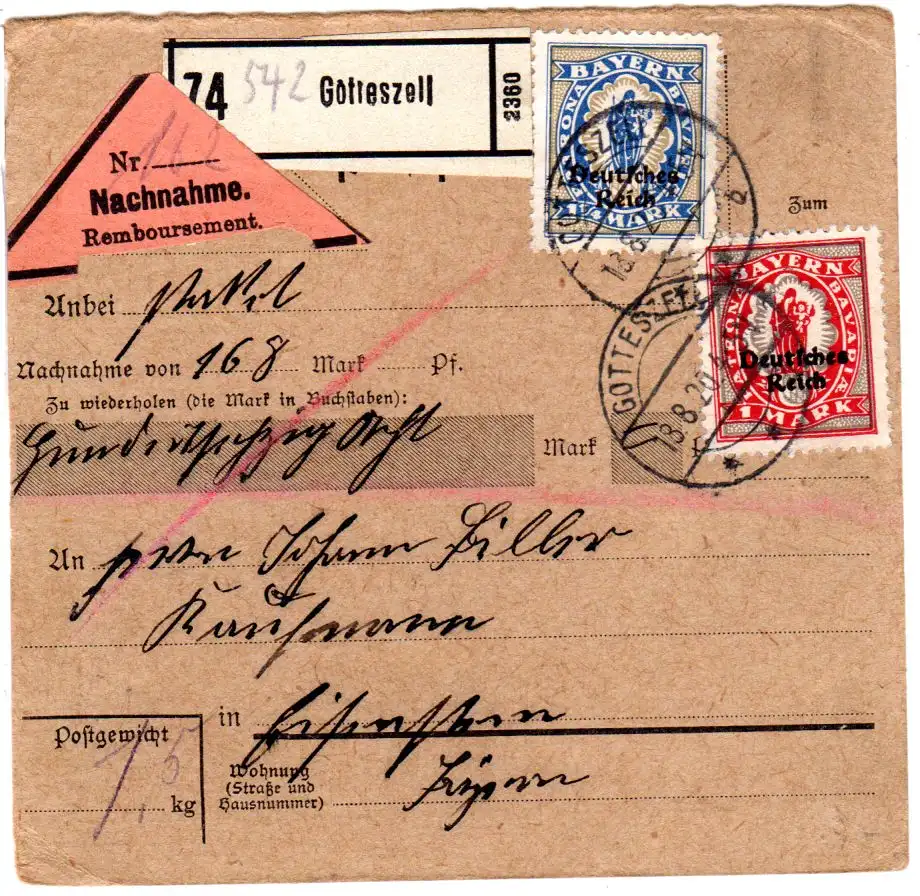 74 542 Gotteszell 2360
Nr. 112
Nachnahme.
Remboursement.
BAYERN
PATRONA BAVARIÆ
Deutsches
Reich
1¼ MARK
GOTTESZELL
18.8.20
b
Zum
BAYERN
PATRONA BAVARIÆ
Deutsches
Reich
1 MARK
GOTTESZELL
18.8.20
Anbei Paket
Nachnahme von 168 Mark Pf.
Zu wiederholen (die Mark in Buchstaben):
Hundertsechzig Acht Mark
An Herrn Johann Biller
Kaufmann
in Eisenstein
Postgewicht
1,5 kg
Wohnung
(Straße und
Hausnummer)
Bayern